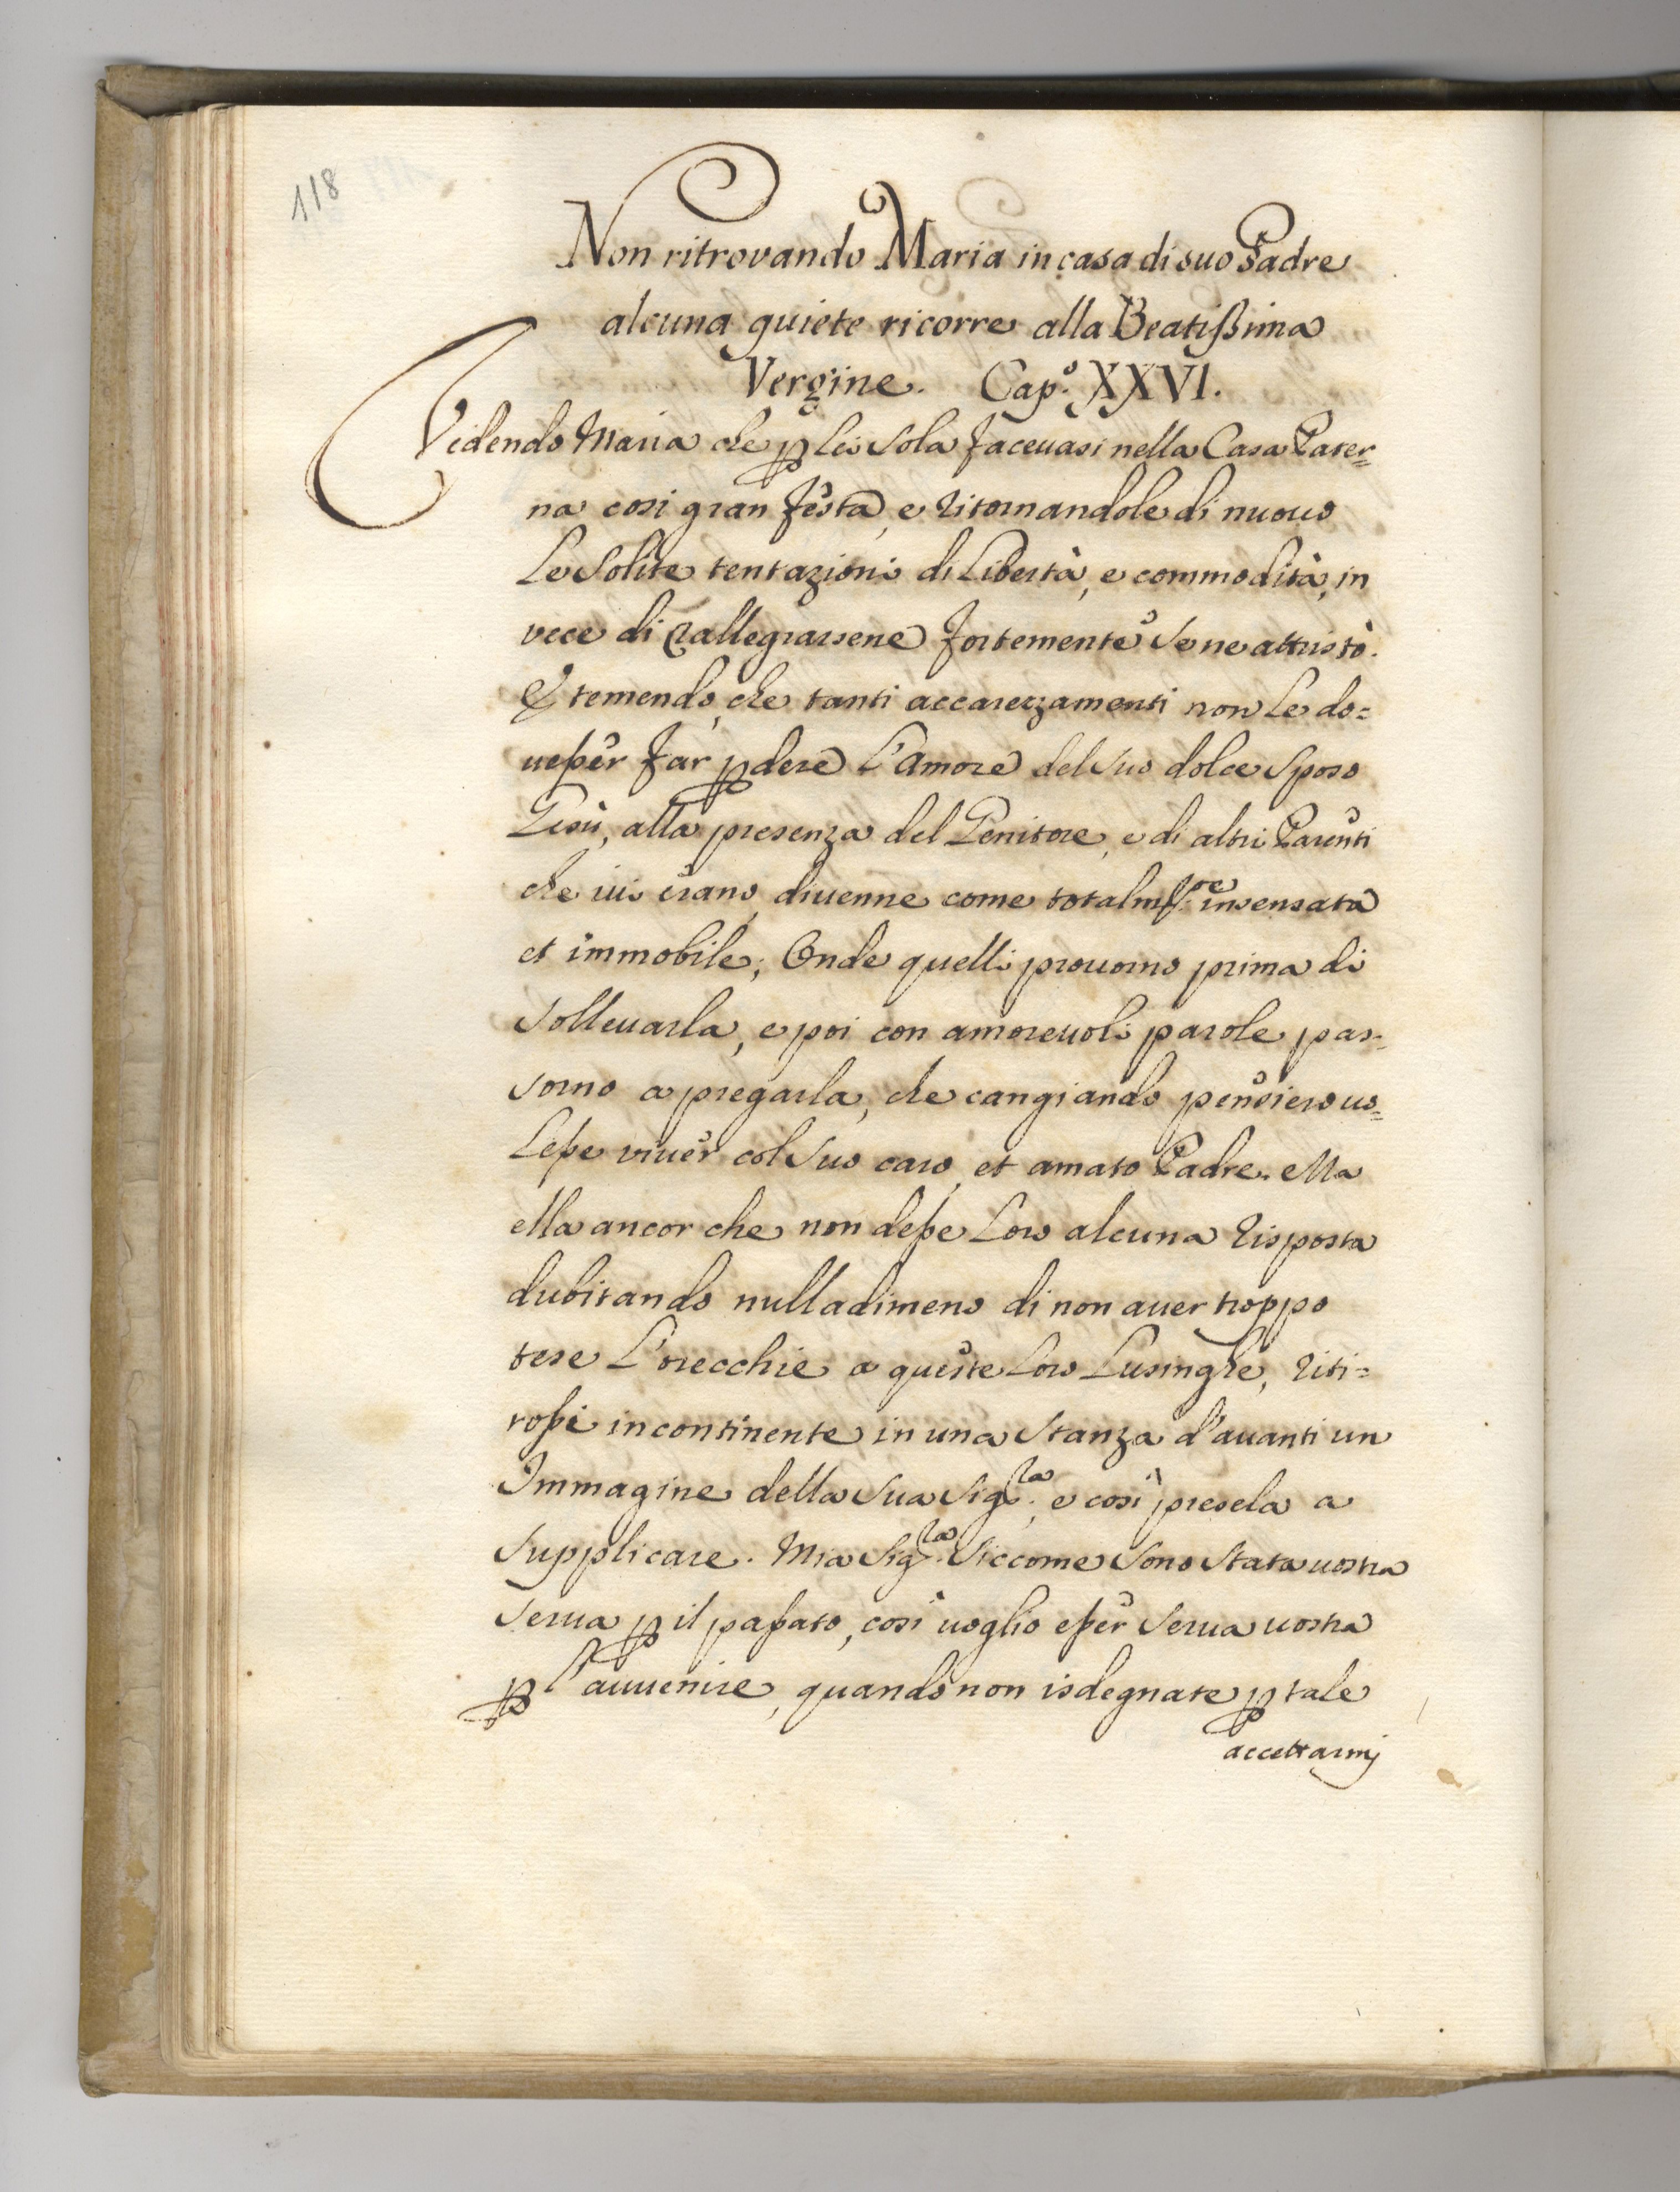 118
Non ritrovando Maria in casa di suo Padre
alcuna quiete ricorre alla Beatißima
Vergine. Cap.º XXVI.
Vedendo Maria che p lei sola faceuasi nella Casa Pater=
na cosi gran festa, e ritornandole di nuouo
le solite tentazioni di libertà, e commodità, in
vece di rallegrarsene fortemente se ne attristò.
E temendo, che tanti accarezzamenti non le do=
ueßer far pdere l'amore del suo dolce sposo
Giesù, alla presenza del Genitore, e di altri Parenti
che iui erano, diuenne come totalmte insensata
et immobile; Onde quelli prouorno prima di
solleuarla, e poi con amoreuoli parole pas=
sorno a pregarla, che cangiando pensiero uo=
leße viuer col suo caro, et amato Padre. Ma
ella ancor che non deße loro alcuna risposta
dubitando nulladimeno di non auer troppo
tese l'orecchie a queste loro lusinghe, riti=
roßi incontinente in una stanza d'auanti un
Immagine della sua Sig.ra, e cosi presela a
supplicare. Mia Sig.ra siccome sono stata uostra
serua p il paßato, così uoglio eßer serua uostra
p l'auuenire, quando non isdegnate p tale
accettarmj